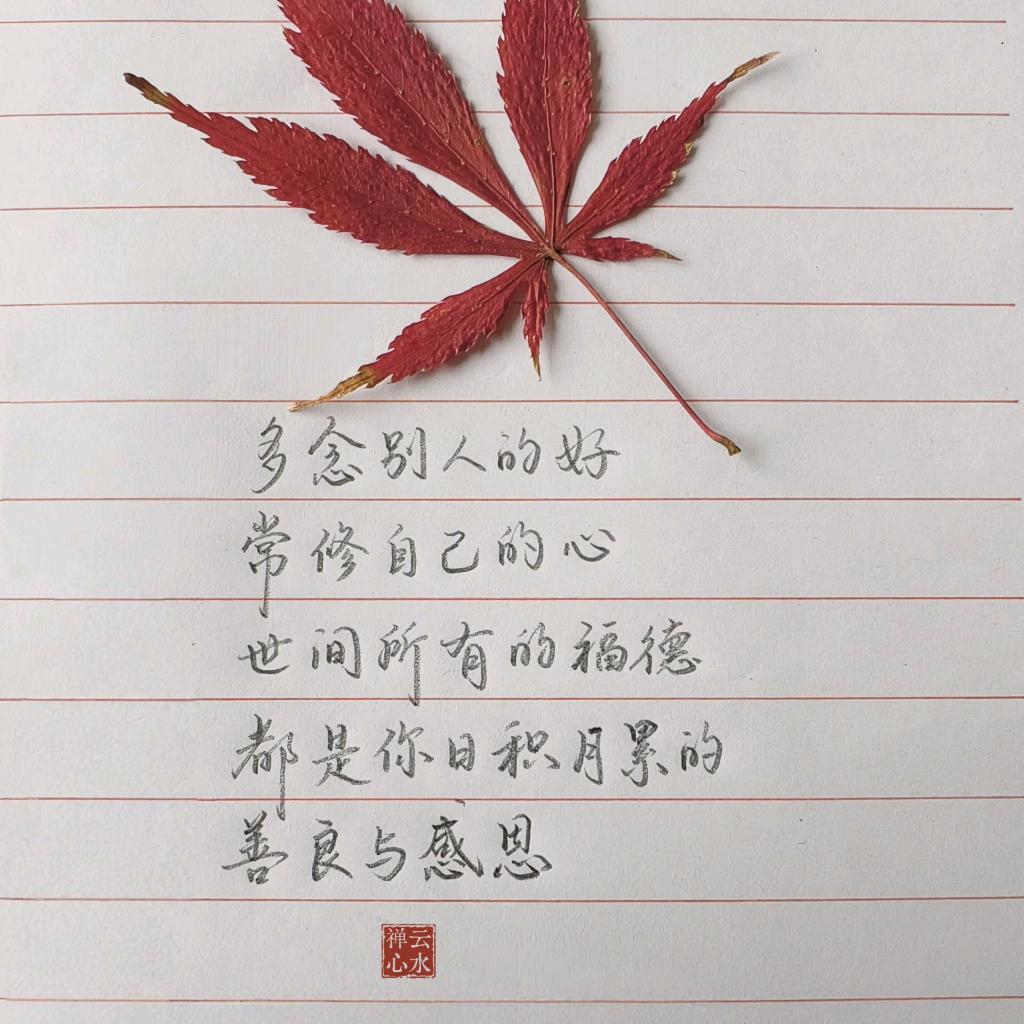 多念别人的好
常修自己的心
世间所有的福德
都是你日积月累的
善良与感恩
云水禅心